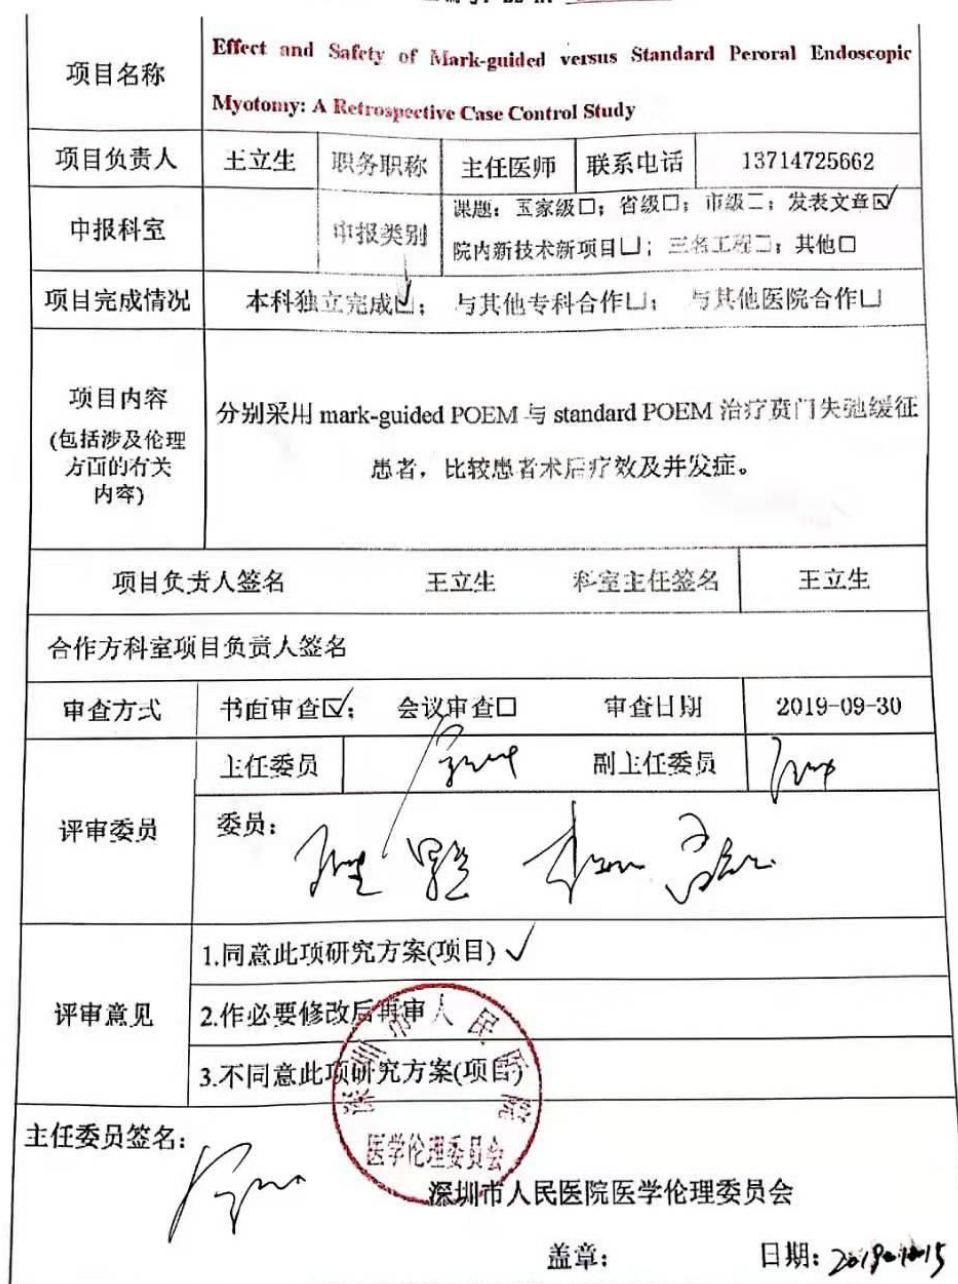 项目名称
Effect and Safety of Mark-guided versus Standard Peroral Endoscopic
Myotomy: A Retrospective Case Control Study
项目负责人 王立生 职务职称 主任医师 联系电话 13714725662
申报科室 申报类别
课题：国家级□；省级□；市级□；发表文章☑
院内新技术新项目□；三名工程□；其他□
项目完成情况 本科独立完成☑； 与其他专科合作□； 与其他医院合作□
项目内容
(包括涉及伦理
方面的有关
内容)
分别采用 mark-guided POEM 与 standard POEM 治疗贲门失弛缓征
患者，比较患者术后疗效及并发症。
项目负责人签名 王立生 科室主任签名 王立生
合作方科室项目负责人签名
审查方式 书面审查☑； 会议审查□ 审查日期 2019-09-30
评审委员
主任委员 副主任委员
委员：
评审意见
1.同意此项研究方案(项目) ✓
2.作必要修改后再审
3.不同意此项研究方案(项目)
深圳市人民医院
医学伦理委员会
主任委员签名：
深圳市人民医院医学伦理委员会
盖章： 日期：